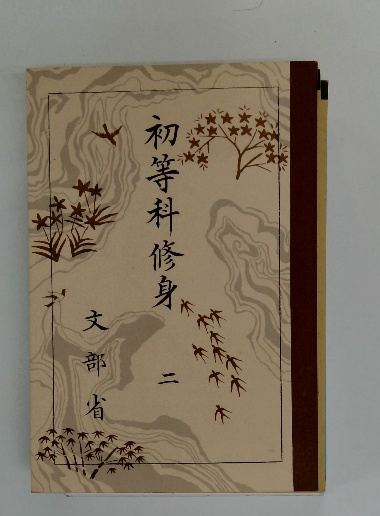 初等科修身 二
文部省